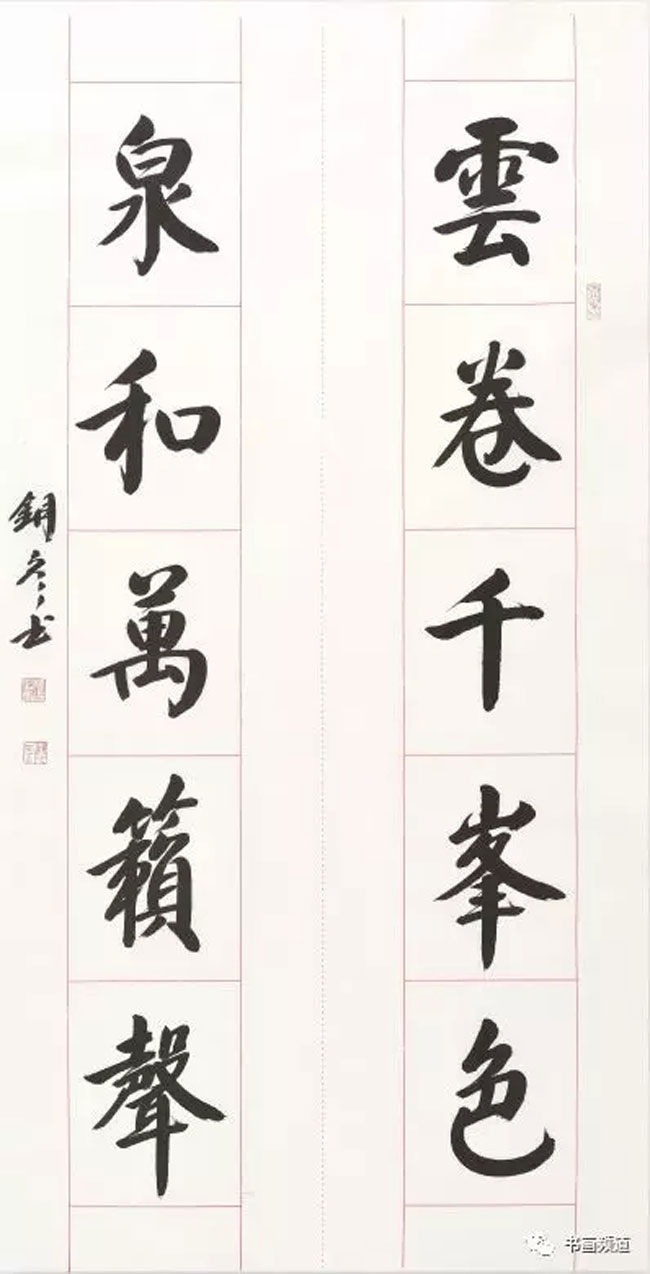 雲卷千峯色
泉和萬籟聲
鋼冬书
书画频道